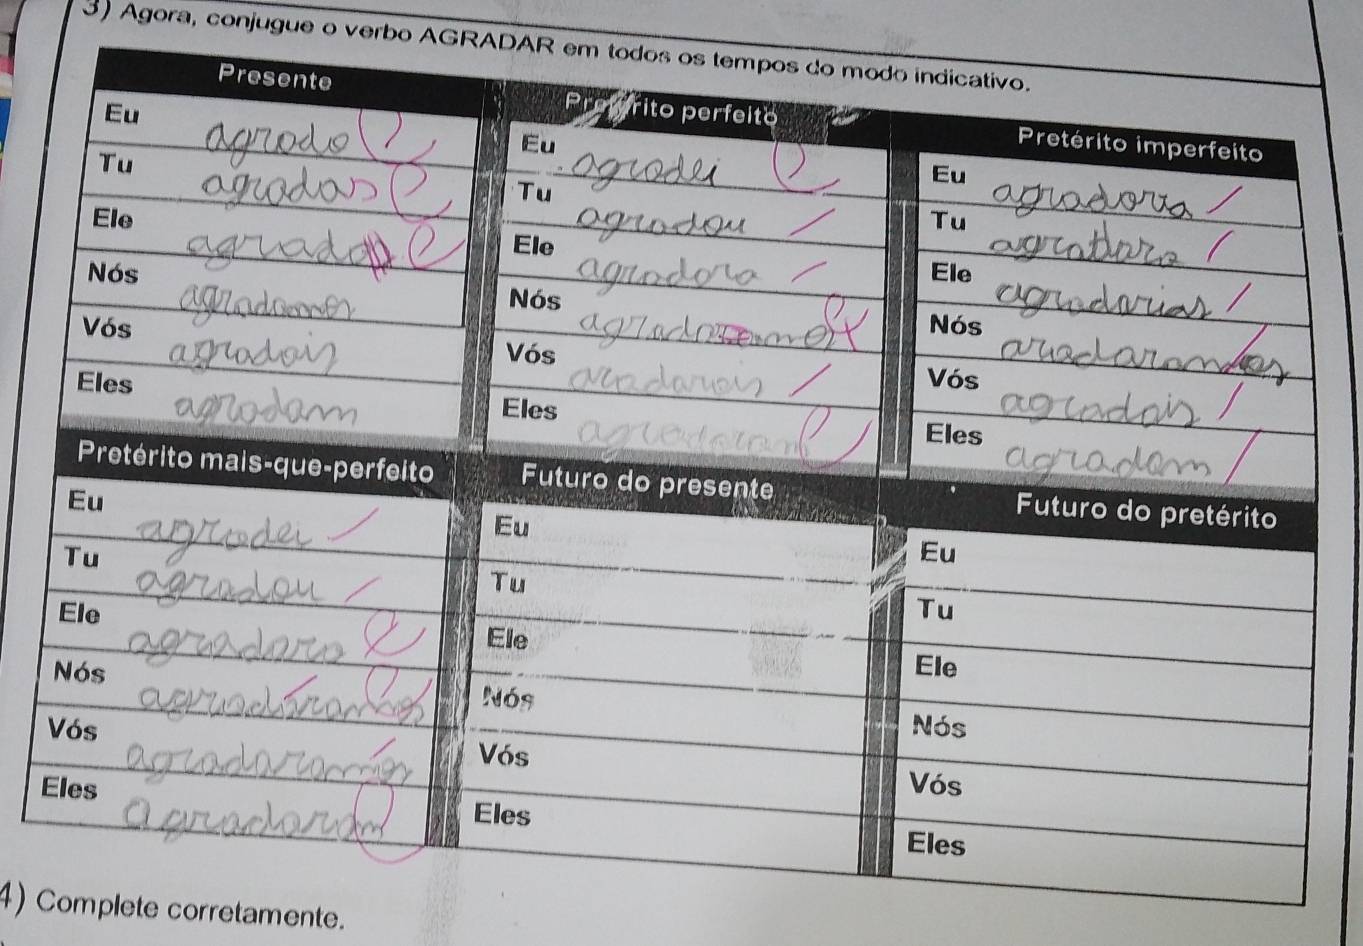 3) Agora, conjugue o verbo AGRADAR em todos os tempos do modo indicativo.
Presente
Eu agrado
Tu agradas
Ele
Nós agradamos
Vós agradais
Eles agradam
Pretérito perfeito
Eu agradei
Tu agradou
Ele agradora
Nós
Vós
Eles
Pretérito imperfeito
Eu
Tu
Ele agradarias
Nós
Vós agradais
Eles agradam
Pretérito mais-que-perfeito
Eu agradei
Tu agradou
Ele agradara
Nós
Vós agradaramos
Eles agradaram
Futuro do presente
Eu
Tu
Ele
Nós
Vós
Eles
Futuro do pretérito
Eu
Tu
Ele
Nós
Vós
Eles
4) Complete corretamente.